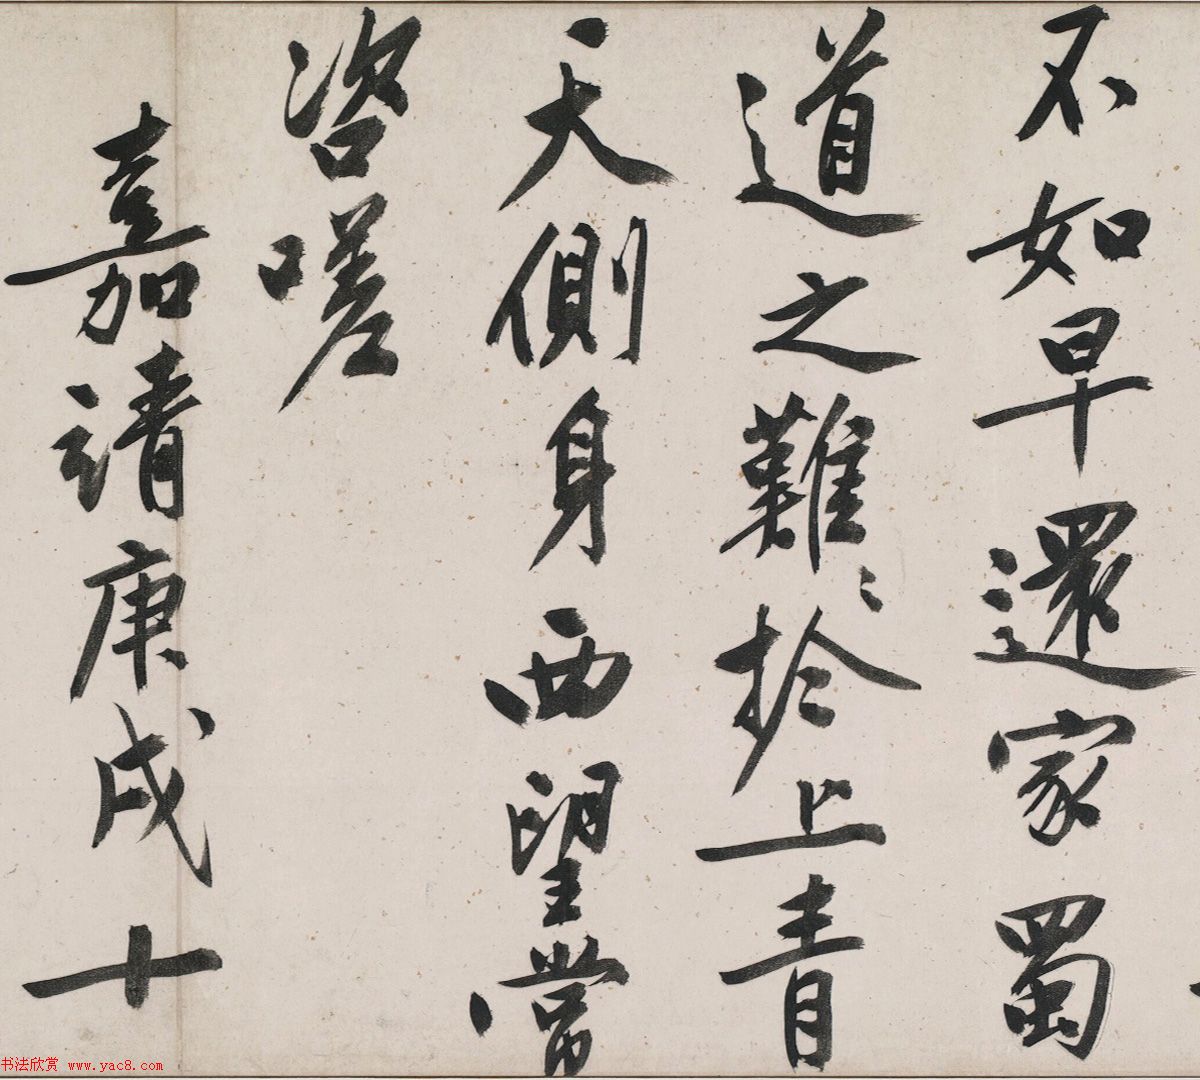 不如早還家蜀
道之難〻於上青
天側身西望常
咨嗟
嘉靖庚戌十
书法欣赏 www.yac8.com